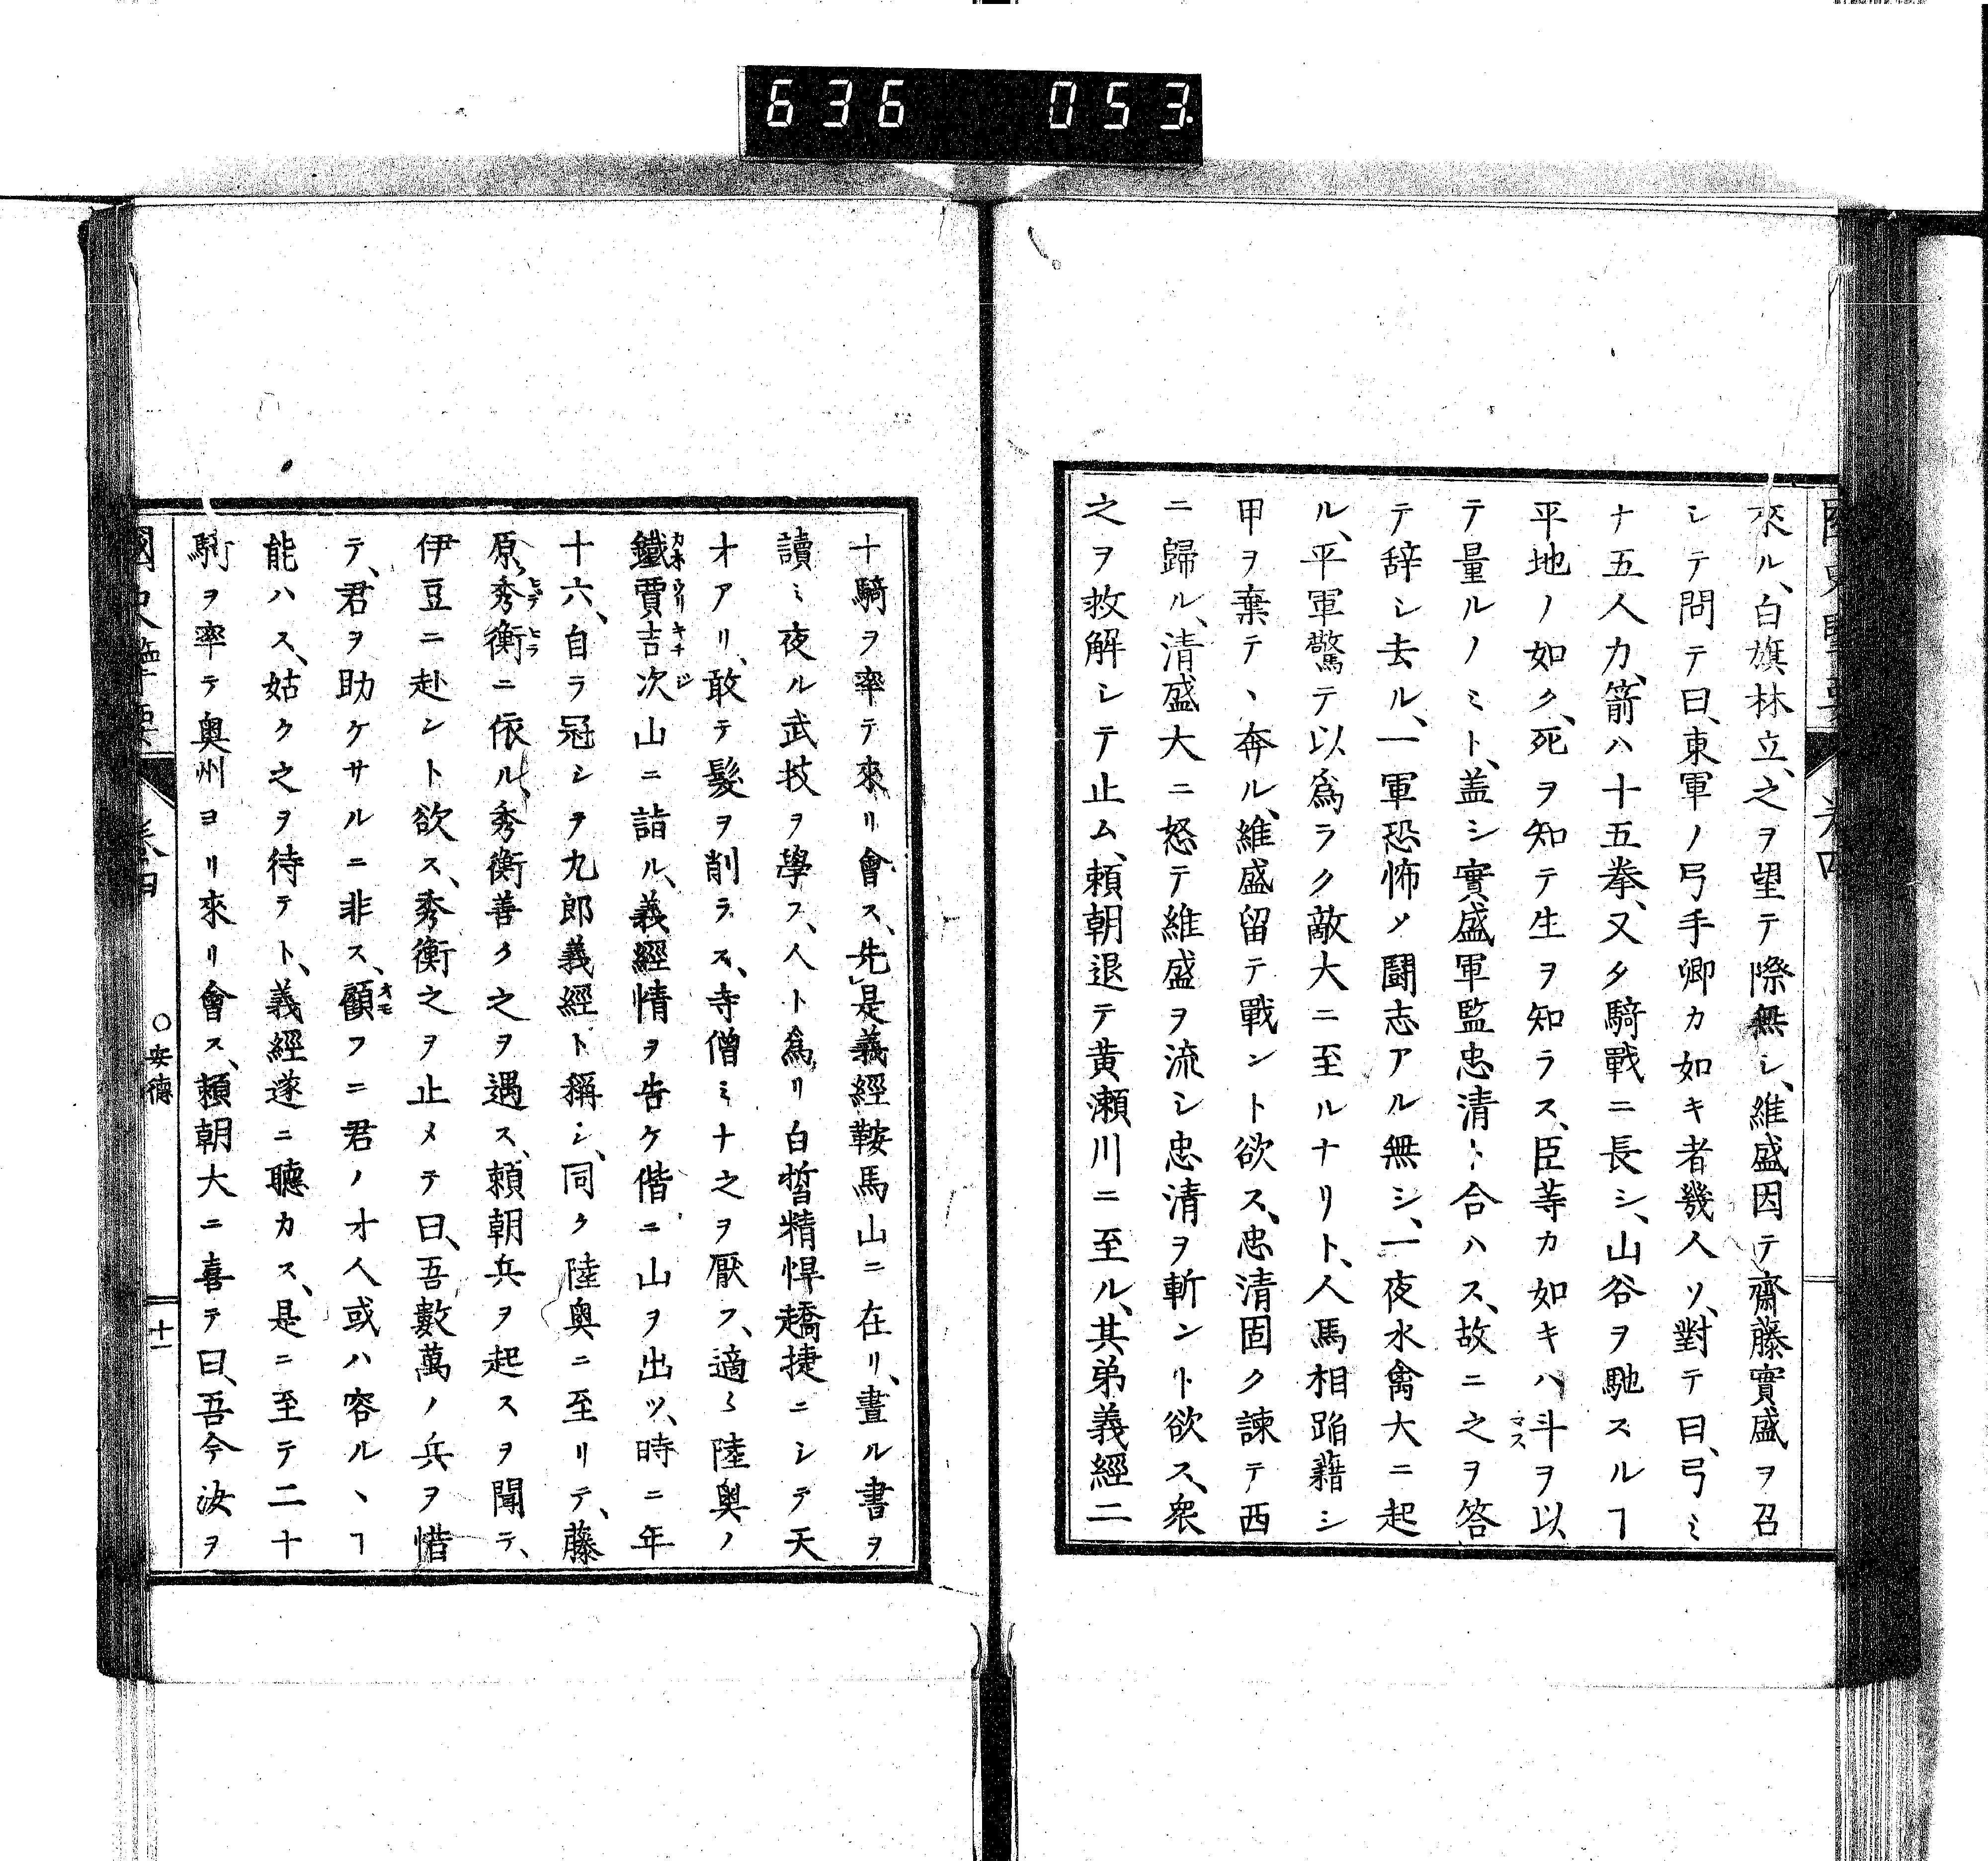 636 053
來ル、白旗林立、之ヲ望テ際無シ、維盛因テ齋藤實盛ヲ召
シテ問テ曰、東軍ノ弓手卿カ如キ者幾人ソ、對テ曰、弓ミ
ナ五人力、箭ハ十五拳、又タ騎戰ニ長シ、山谷ヲ馳スルヿ
平地ノ如ク、死ヲ知テ生ヲ知ラス、臣等カ如キハ斗ヲ以
マス
テ量ルノミト、盖シ實盛軍監忠清ト合ハス、故ニ之ヲ答
テ辞シ去ル、一軍恐怖メ鬪志アル無シ、一夜水禽大ニ起
ル、平軍驚テ以爲ラク敵大ニ至ルナリト、人馬相蹈藉シ
甲ヲ棄テヽ奔ル、維盛留テ戰ント欲ス、忠清固ク諫テ西
ニ歸ル、清盛大ニ怒テ維盛ヲ流シ忠清ヲ斬ント欲ス、衆
之ヲ救解シテ止ム、頼朝退テ黄瀬川ニ至ル、其弟義經二
十騎ヲ率テ來リ會ス、先是義經鞍馬山ニ在リ、晝ル書ヲ
讀ミ夜ル武技ヲ學フ、人ト爲リ白皙精悍趫捷ニシテ天
才アリ、敢テ髮ヲ削ラス、寺僧ミナ之ヲ厭フ、適〻陸奥ノ
鐵賈吉次山ニ詣ル、義經情ヲ告ケ偕ニ山ヲ出ツ、時ニ年
カネウリキチジ
十六、自ラ冠シヲ九郎義經ト稱シ、同ク陸奥ニ至リテ、藤
原秀衡ニ依ル、秀衡善ク之ヲ遇ス、頼朝兵ヲ起スヲ聞テ、
ヒデヒラ
伊豆ニ赴ント欲ス、秀衡之ヲ止メテ曰、吾數萬ノ兵ヲ惜
テ、君ヲ助ケサルニ非ス、顧フニ君ノ才人或ハ容ルヽヿ
オモ
能ハス、姑ク之ヲ待テト、義經遂ニ聽カス、是ニ至テ二十
騎ヲ率テ奥州ヨリ來リ會ス、頼朝大ニ喜テ曰、吾今汝ヲ
〇安德
十一